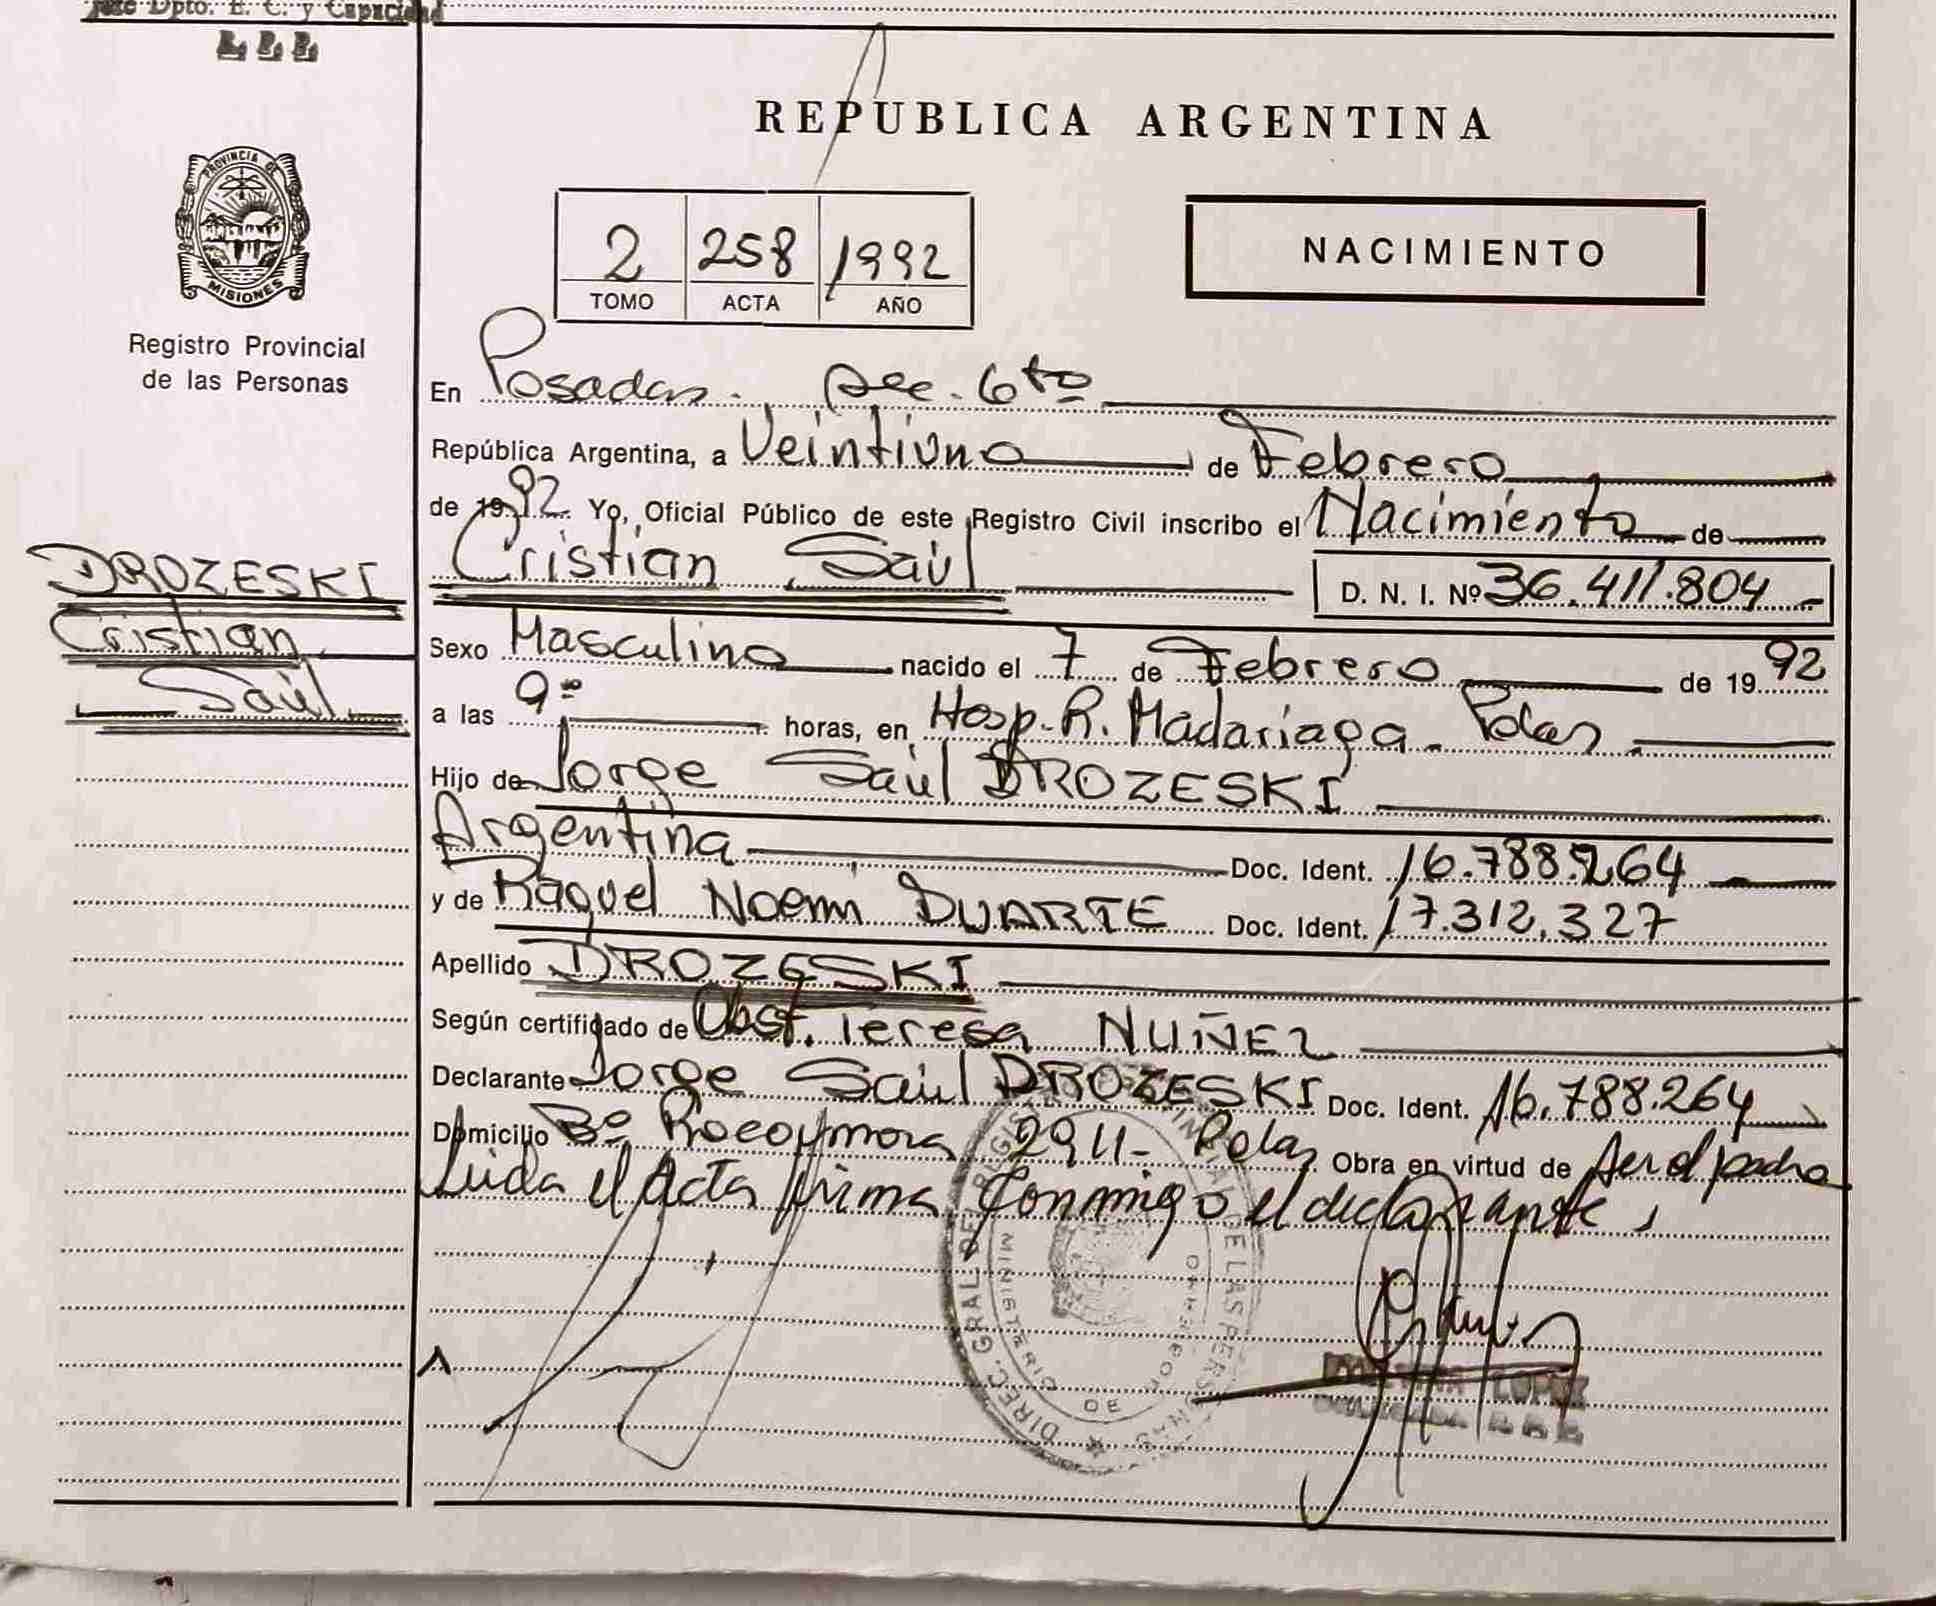 Jefe Dpto. E. C. y Capacidad
R. P. P.
REPUBLICA ARGENTINA
PROVINCIA DE
MISIONES
Registro Provincial
de las Personas
2 258 1992
TOMO ACTA AÑO
NACIMIENTO
En Posadas. Sec. 6to
República Argentina, a Veintiuno de Febrero
de 1992. Yo, Oficial Público de este Registro Civil inscribo el Nacimiento de
Cristian Saúl D. N. I. Nº 36.411.804
DROZESKI
Cristian
Saúl
Sexo Masculino nacido el 7 de Febrero de 1992
a las 9 horas, en Hosp. R. Madariaga. Pdas.
Hijo de Jorge Saúl DROZESKI
Argentina Doc. Ident. 16.788.264
y de Raquel Noemi DUARTE Doc. Ident. 17.312.327
Apellido DROZESKI
Según certificado de Obst. Teresa NUÑEZ
Declarante Jorge Saúl DROZESKI Doc. Ident. 16.788.264
Domicilio Bº Rocamora 2911. Pdas. Obra en virtud de Ser el padre
Leida el Acta firma conmigo el declarante,
DIREC. GRAL. DEL REGISTRO PROVINCIAL DE LAS PERSONAS
MINISTERIO DE GOBIERNO
LOPEZ